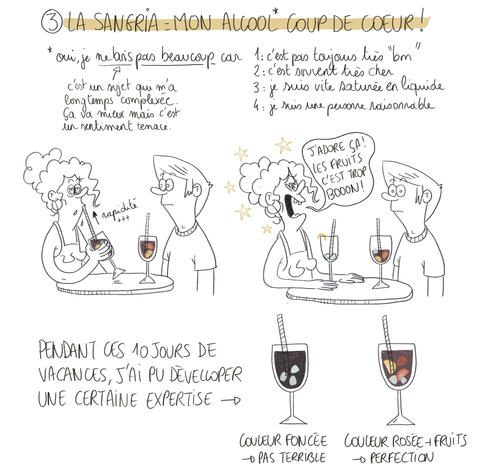 ③ LA SANGRIA = MON ALCOOL* COUP DE COEUR !
* oui, je ne bois pas beaucoup car
c'est un sujet qui m'a
longtemps complexée.
Ça va mieux mais c'est
un sentiment tenace.
1 : c'est pas toujours très "bon"
2 : c'est souvent très cher
3 : je suis vite saturée en liquide
4 : je suis une personne raisonnable
rapidité
+++
J'ADORE ÇA !
LES FRUITS
C'EST TROP
BOOON !
PENDANT CES 10 JOURS DE
VACANCES, J'AI PU DÉVELOPER
UNE CERTAINE EXPERTISE →
COULEUR FONCÉE
→ PAS TERRIBLE
COULEUR ROSÉE + FRUITS
→ PERFECTION